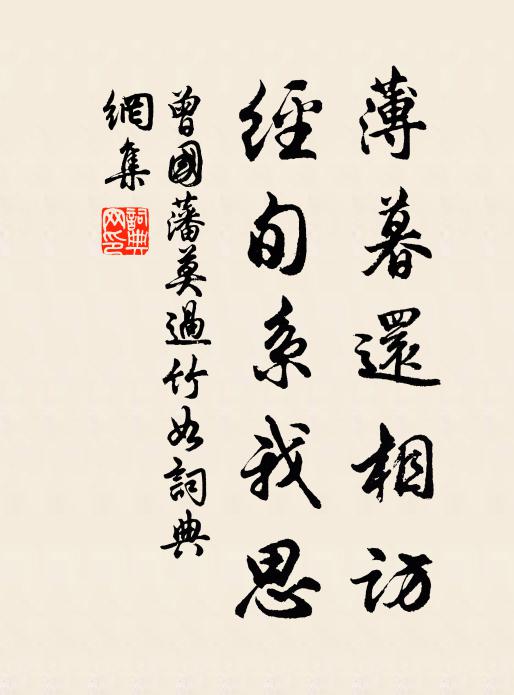 薄暮還相訪
經旬系我思
曾國藩莫過竹如詞典
網集
詞典网印